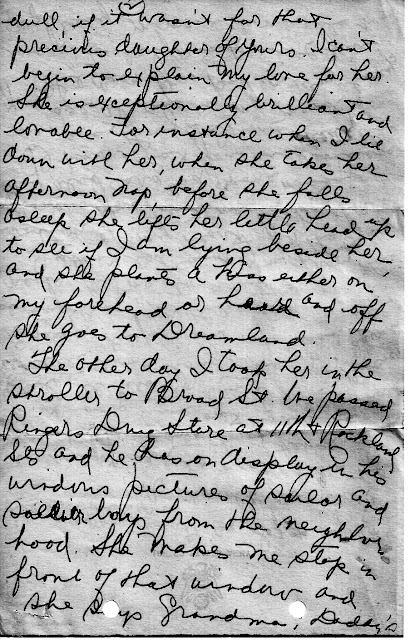 dull if it wasn't for that
precious daughter of yours. I can't
begin to explain my love for her.
She is exceptionally brilliant and
lovabee. For instance when I lie
down with her, when she takes her
afternoon nap, before she falls
asleep she lifts her little head up
to see if I am lying beside her,
and she plants a kiss either on
my forehead or hand and off
she goes to Dreamland.
The other day I took her in the
stroller to Broad St. We passed
Ringers Drug Store at 11th & Rockland
Sts and he has on display in his
windows pictures of sailor and
soldier boys from the neighbor
hood. She makes me stop in
front of that window and
she says Grandma, Daddy's